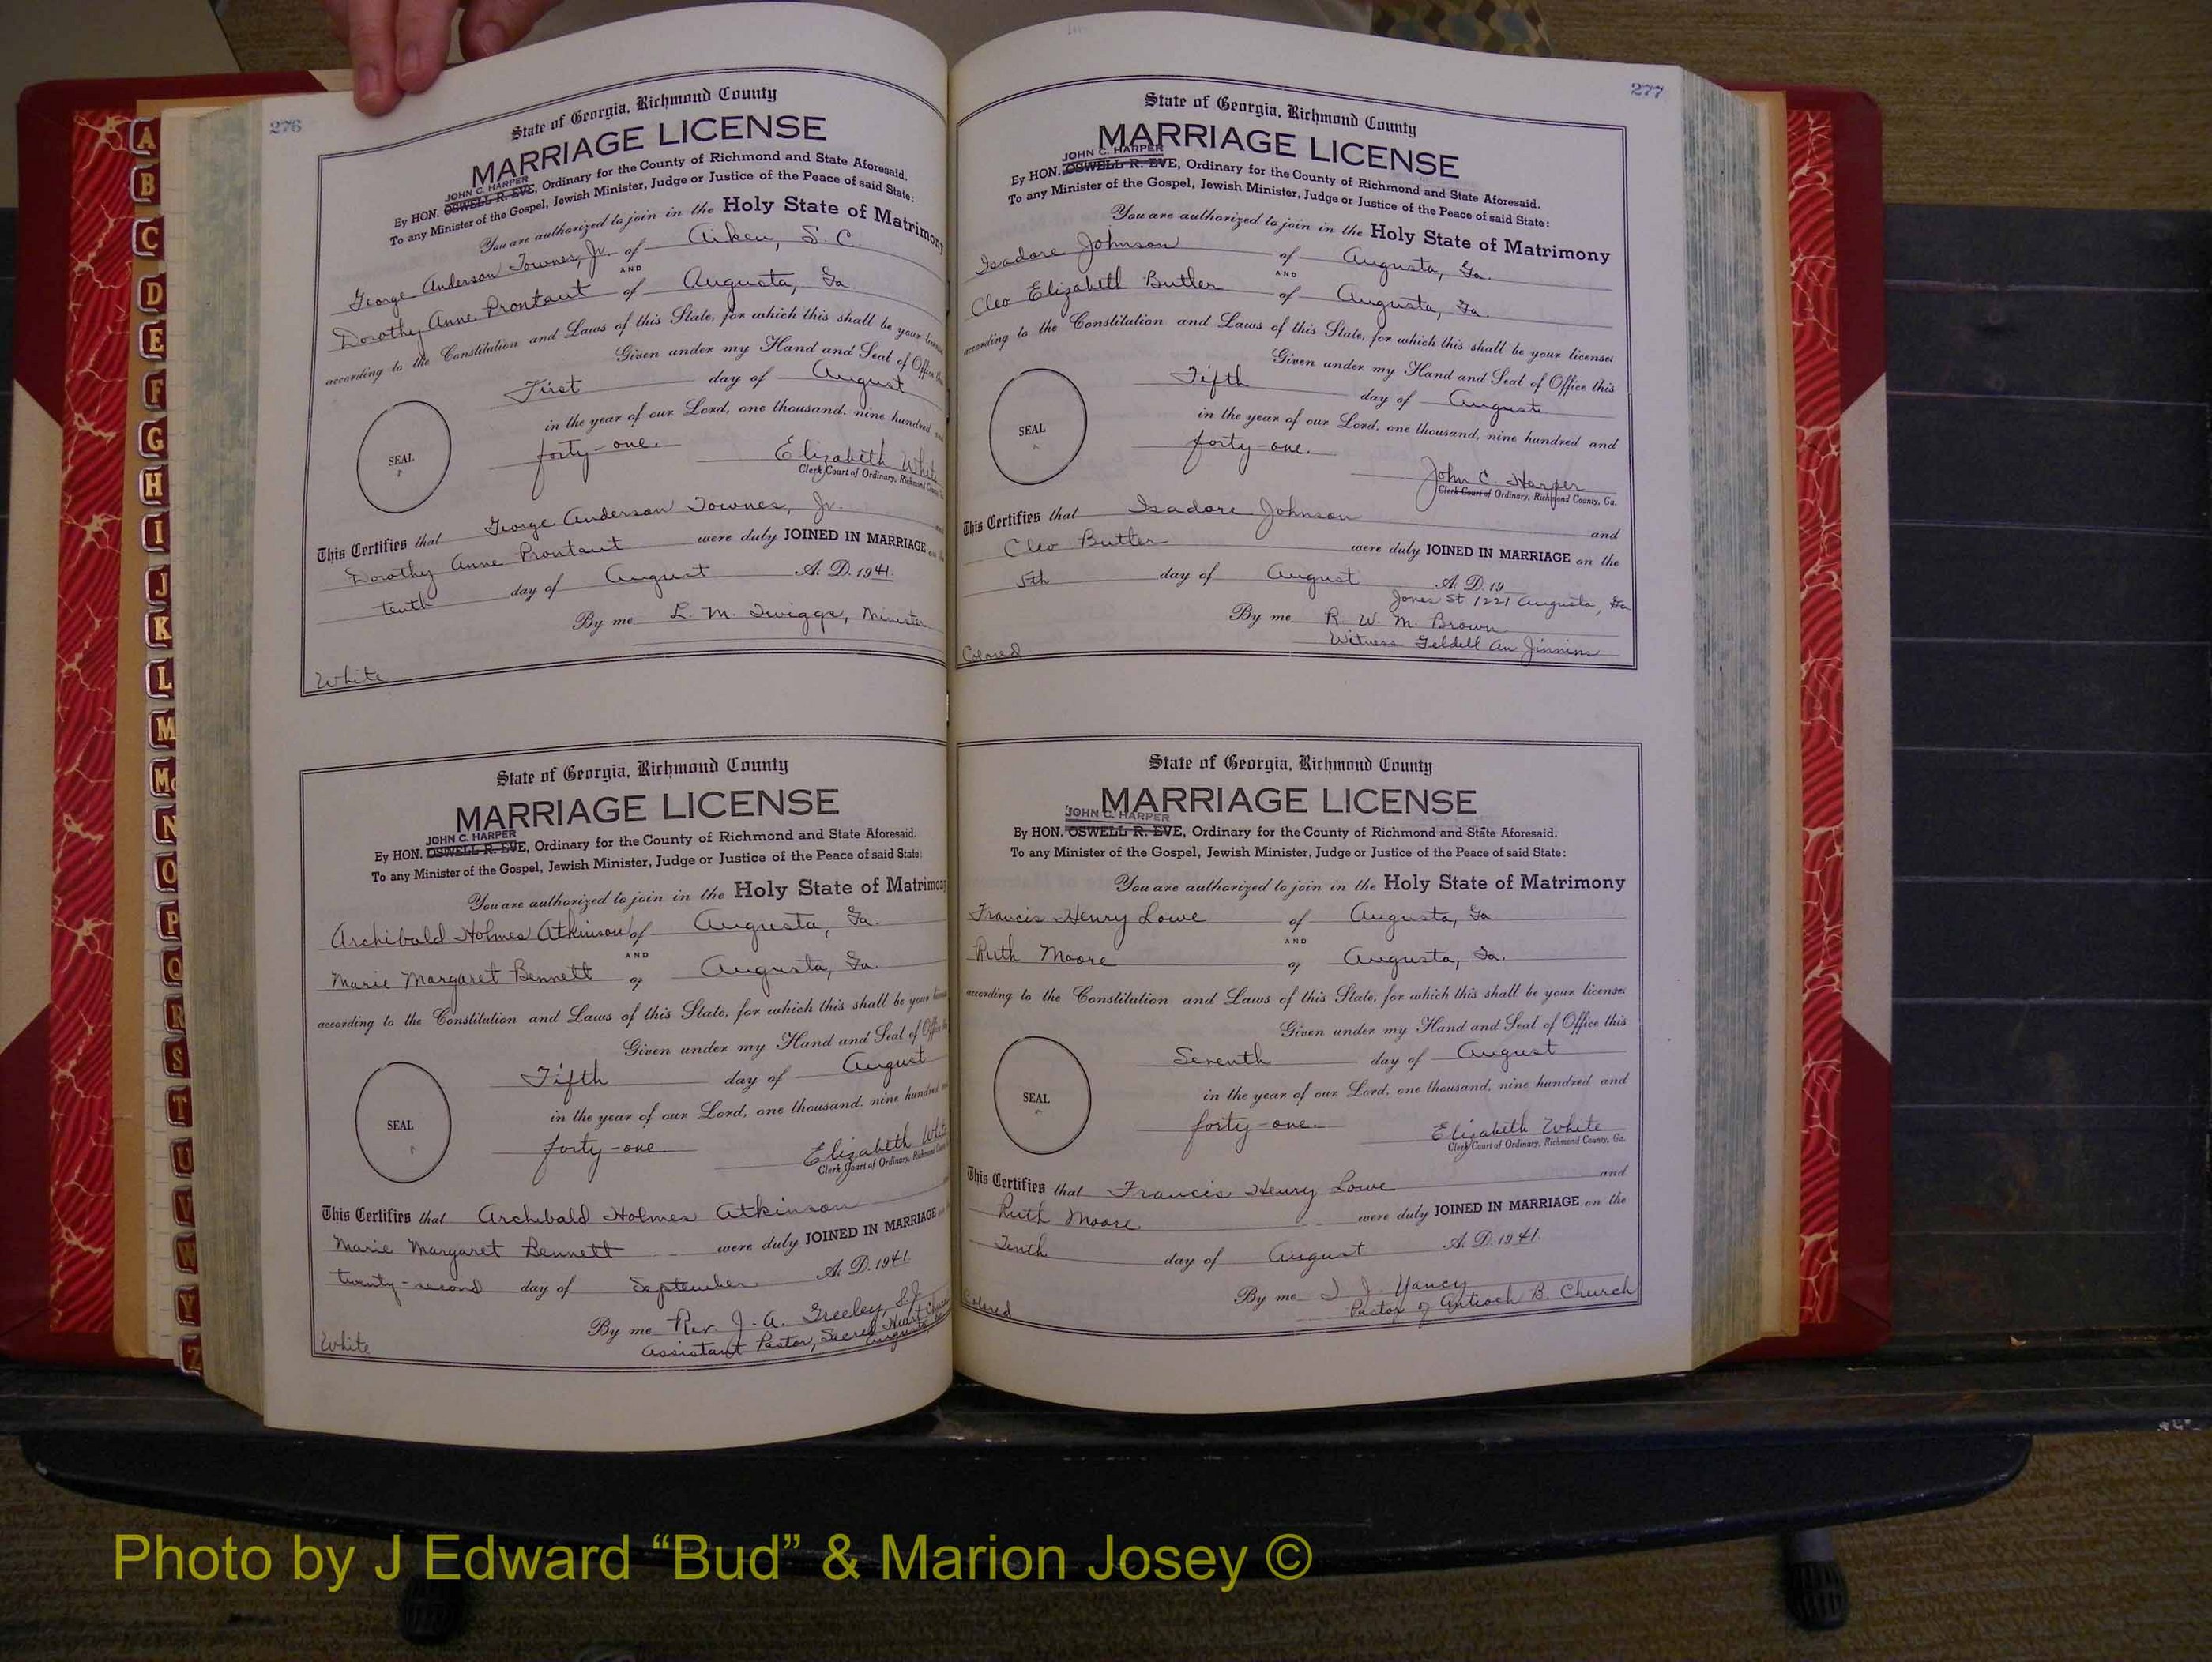 276
State of Georgia, Richmond County
MARRIAGE LICENSE
JOHN C. HARPER
By HON. OSWELL R. EVE, Ordinary for the County of Richmond and State Aforesaid.
To any Minister of the Gospel, Jewish Minister, Judge or Justice of the Peace of said State:
You are authorized to join in the Holy State of Matrimony
George Anderson Townes, Jr. of Aiken, S. C.
AND
Dorothy Anne Prontaut of Augusta, Ga
according to the Constitution and Laws of this State, for which this shall be your
Given under my Hand and Seal of Office
First day of August
in the year of our Lord, one thousand, nine hundred
forty-one.
SEAL
Elizabeth White
Clerk Court of Ordinary, Richmond County
This Certifies that George Anderson Townes, Jr.
Dorothy Anne Prontaut were duly JOINED IN MARRIAGE
tenth day of August A. D. 1941.
By me L. M. Twiggs, Minister
White
State of Georgia, Richmond County
MARRIAGE LICENSE
JOHN C. HARPER
By HON. OSWELL R. EVE, Ordinary for the County of Richmond and State Aforesaid.
To any Minister of the Gospel, Jewish Minister, Judge or Justice of the Peace of said State:
You are authorized to join in the Holy State of Matrimony
Archibald Holmes Atkinson of Augusta, Ga.
AND
Marie Margaret Bennett of Augusta, Ga.
according to the Constitution and Laws of this State, for which this shall be your
Given under my Hand and Seal of Office
Fifth day of August
in the year of our Lord, one thousand, nine hundred
forty-one
SEAL
Elizabeth White
Clerk Court of Ordinary, Richmond
This Certifies that Archibald Holmes Atkinson
Marie Margaret Bennett were duly JOINED IN MARRIAGE
twenty-second day of September A. D. 1941.
By me Rev. J. A. Greeley, S.J.
Assistant Pastor, Sacred Heart Church
Augusta
White
277
State of Georgia, Richmond County
MARRIAGE LICENSE
JOHN C. HARPER
By HON. OSWELL R. EVE, Ordinary for the County of Richmond and State Aforesaid.
To any Minister of the Gospel, Jewish Minister, Judge or Justice of the Peace of said State:
You are authorized to join in the Holy State of Matrimony
Isadore Johnson of Augusta, Ga.
AND
Cleo Elizabeth Butler of Augusta, Ga.
according to the Constitution and Laws of this State, for which this shall be your license
Given under my Hand and Seal of Office this
Fifth day of August
in the year of our Lord, one thousand, nine hundred and
forty-one.
SEAL
John C. Harper
Clerk Court of Ordinary, Richmond County, Ga.
This Certifies that Isadore Johnson and
Cleo Butler were duly JOINED IN MARRIAGE on the
5th day of August A. D. 19
Jones St 1221 Augusta, Ga
By me R. W. M. Brown
Witness Geldell An Jinnins
Colored
State of Georgia, Richmond County
MARRIAGE LICENSE
JOHN C. HARPER
By HON. OSWELL R. EVE, Ordinary for the County of Richmond and State Aforesaid.
To any Minister of the Gospel, Jewish Minister, Judge or Justice of the Peace of said State:
You are authorized to join in the Holy State of Matrimony
Francis Henry Lowe of Augusta, Ga
AND
Ruth Moore of Augusta, Ga.
according to the Constitution and Laws of this State, for which this shall be your license
Given under my Hand and Seal of Office this
Seventh day of August
in the year of our Lord, one thousand, nine hundred and
forty-one.
SEAL
Elizabeth White
Clerk Court of Ordinary, Richmond County, Ga.
This Certifies that Francis Henry Lowe and
Ruth Moore were duly JOINED IN MARRIAGE on the
Tenth day of August A. D. 1941.
By me J. J. Yancy
Pastor of Antioch B. Church
Colored
A
B
C
D
E
F
G
H
I
J
K
L
M
Mc
N
O
P
Q
R
S
T
U
V
W
Y
Z
Photo by J Edward “Bud” & Marion Josey ©